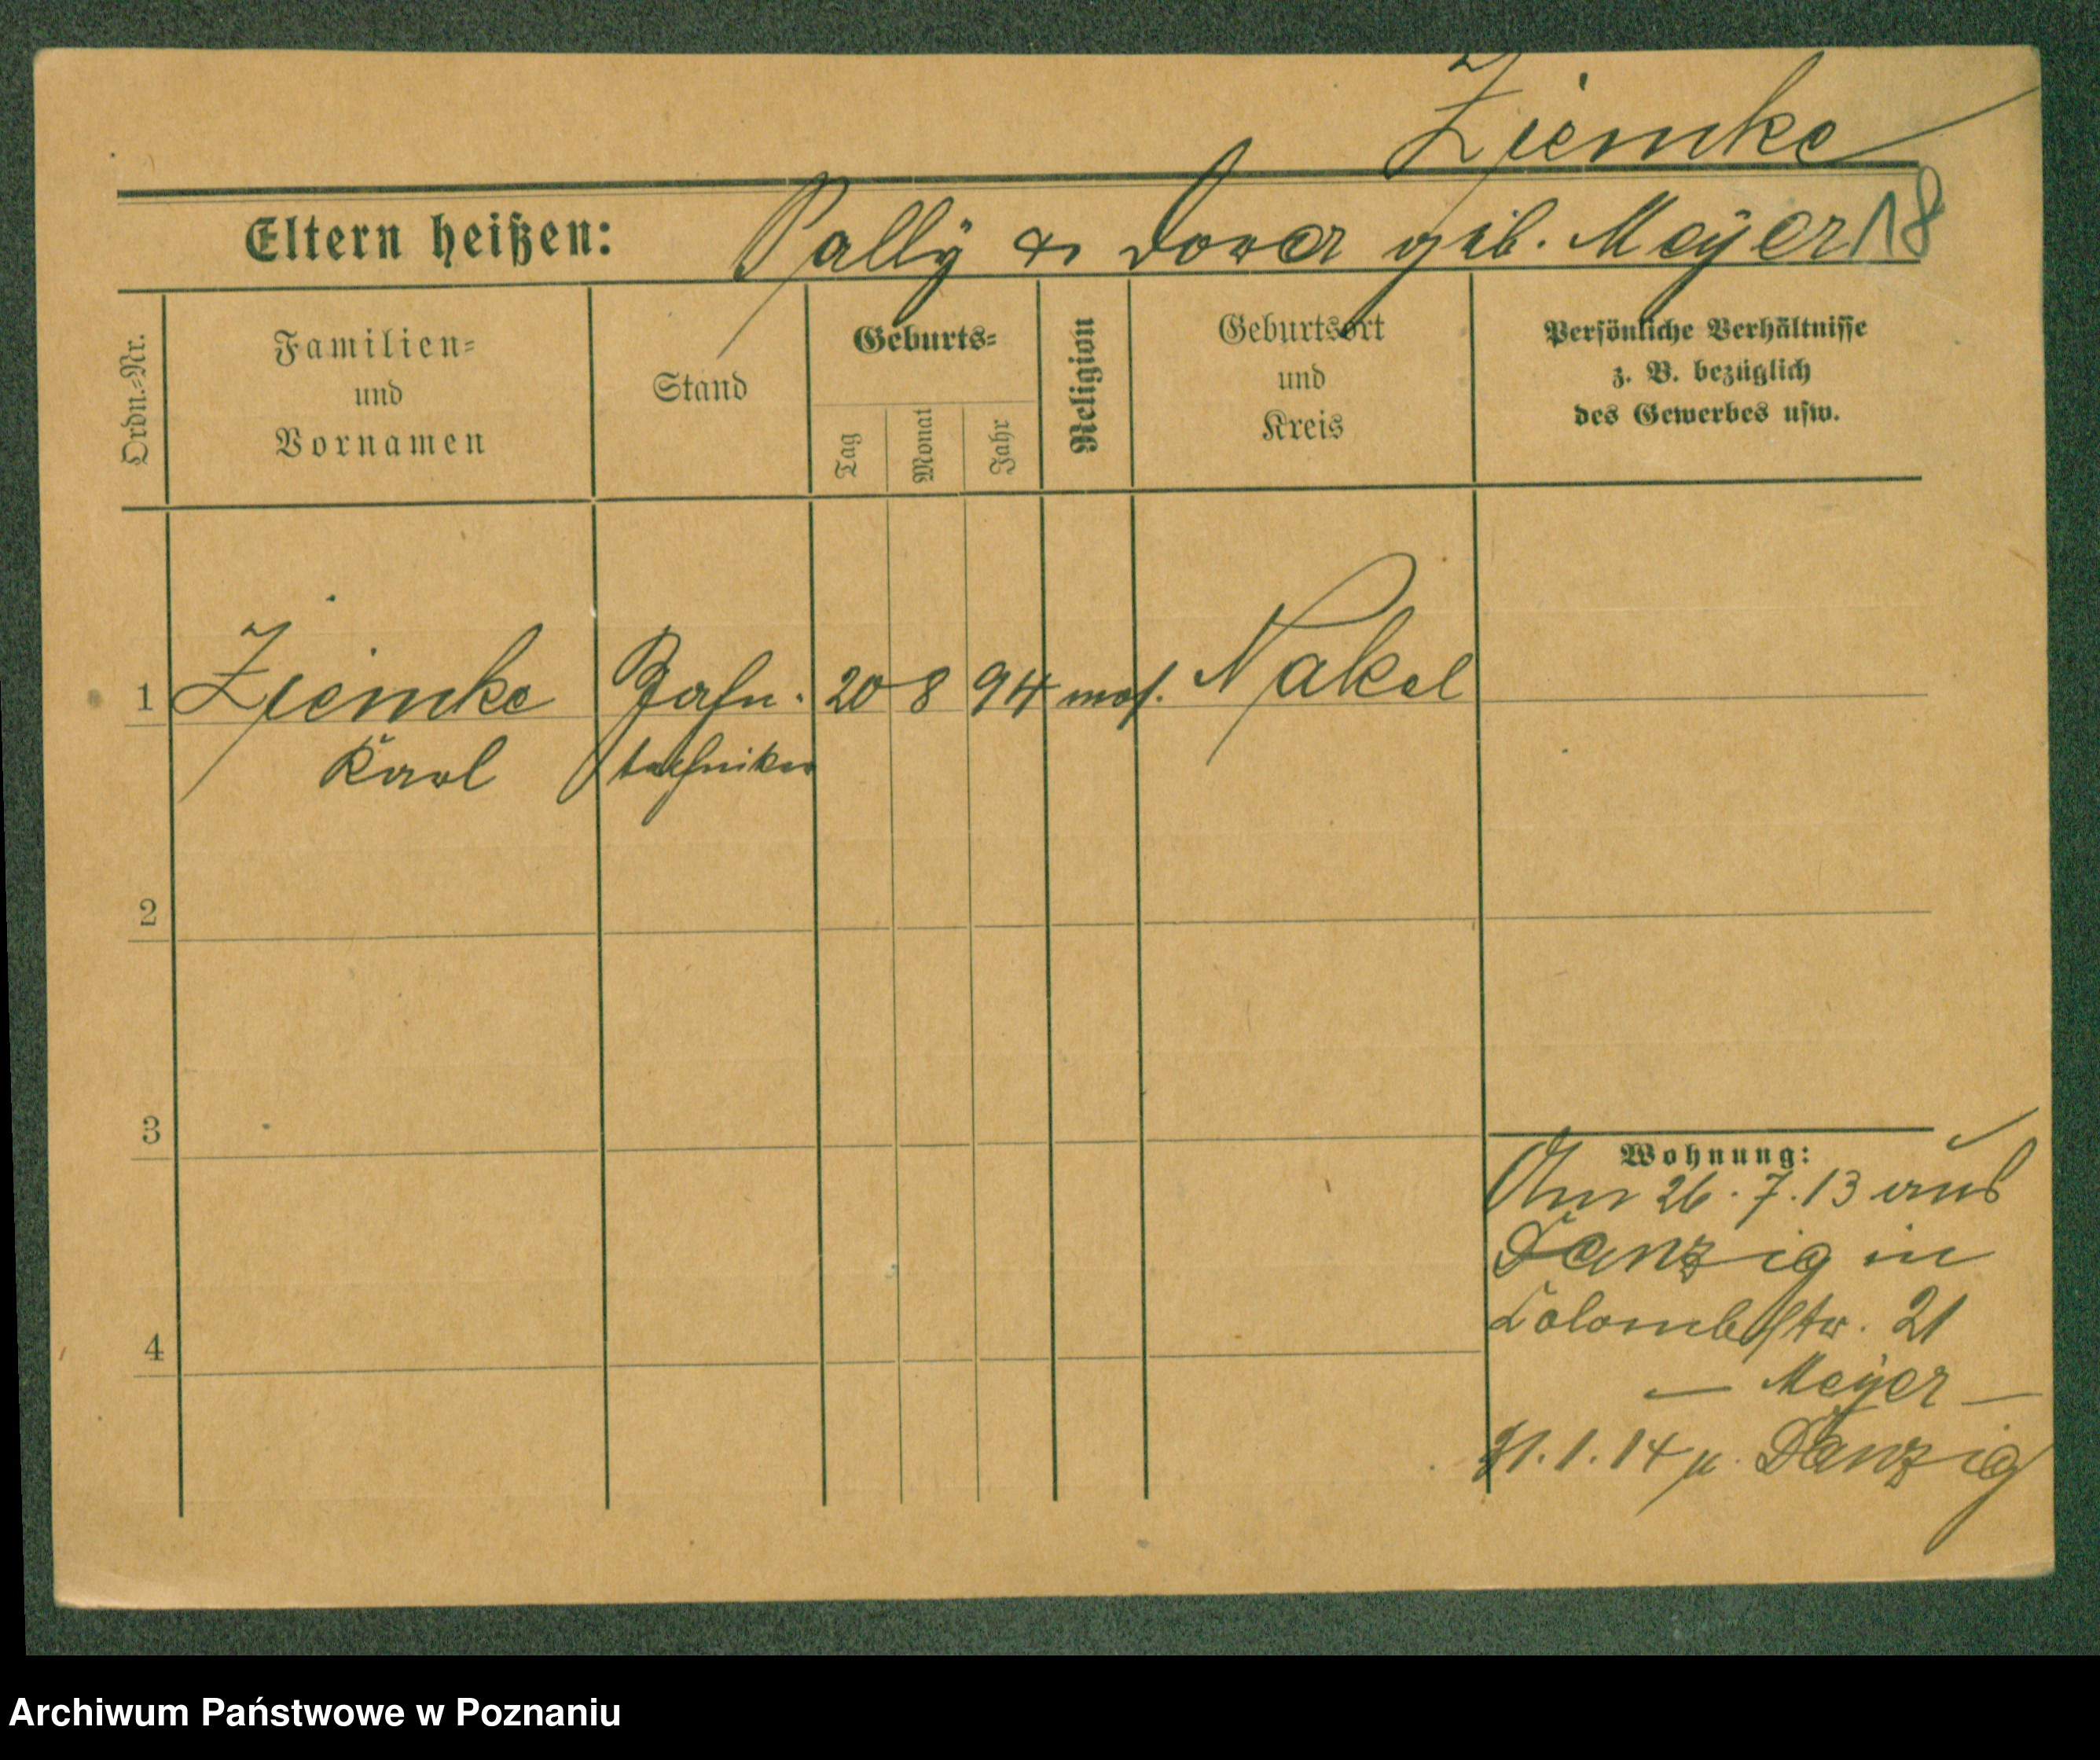 Ziemke
Eltern heißen: Sally & Dora geb. Meyer 18
Ordn.-Nr.
Familien-
und
Vornamen
Stand
Geburts-
Tag
Monat
Jahr
Religion
Geburtsort
und
Kreis
Persönliche Verhältnisse
z. B. bezüglich
des Gewerbes usw.
1 Ziemke Zahn- 20 8 94 mos. Nakel
Karl techniker
2
3
4
Wohnung:
Am 26.7.13 aus
Danzig in
Colombstr. 21
— Meyer —
31.1.14 n. Danzig
Archiwum Państwowe w Poznaniu